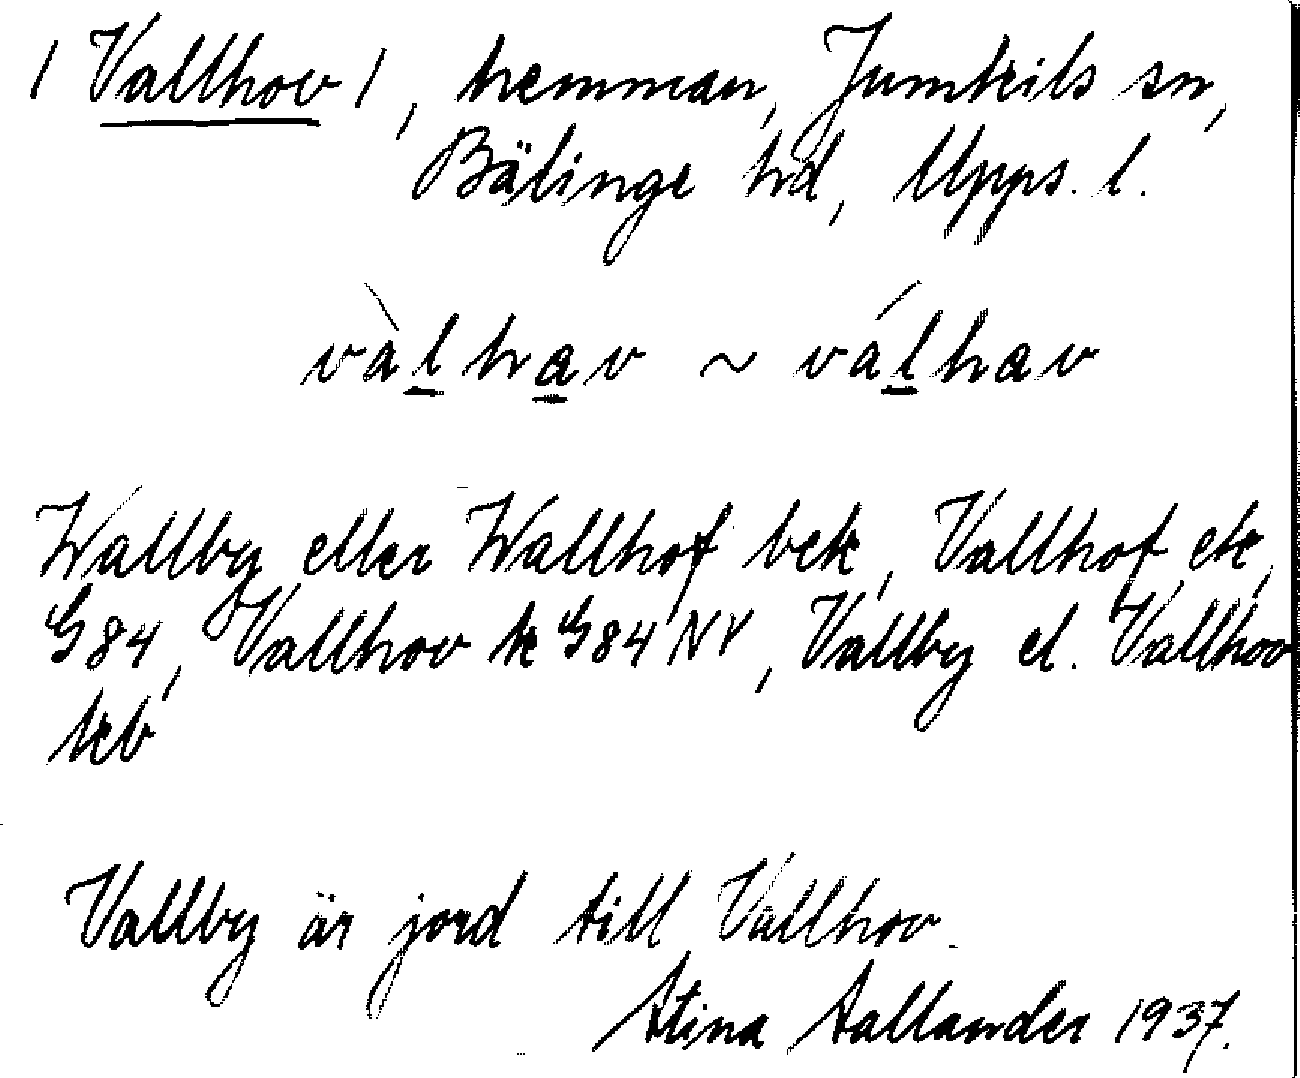 / Vallhov /, hemman, Jumkils sn,
Bälinge hd, Upps. l.
vàlhav ~ válhav
Wallby eller Wallhof bek, Vallhof ek,
G84, Vallhov k G84 NV, Vallby el. Vallhov
kb
Vallby är jord till Vallhov.
Stina Sallander 1937.